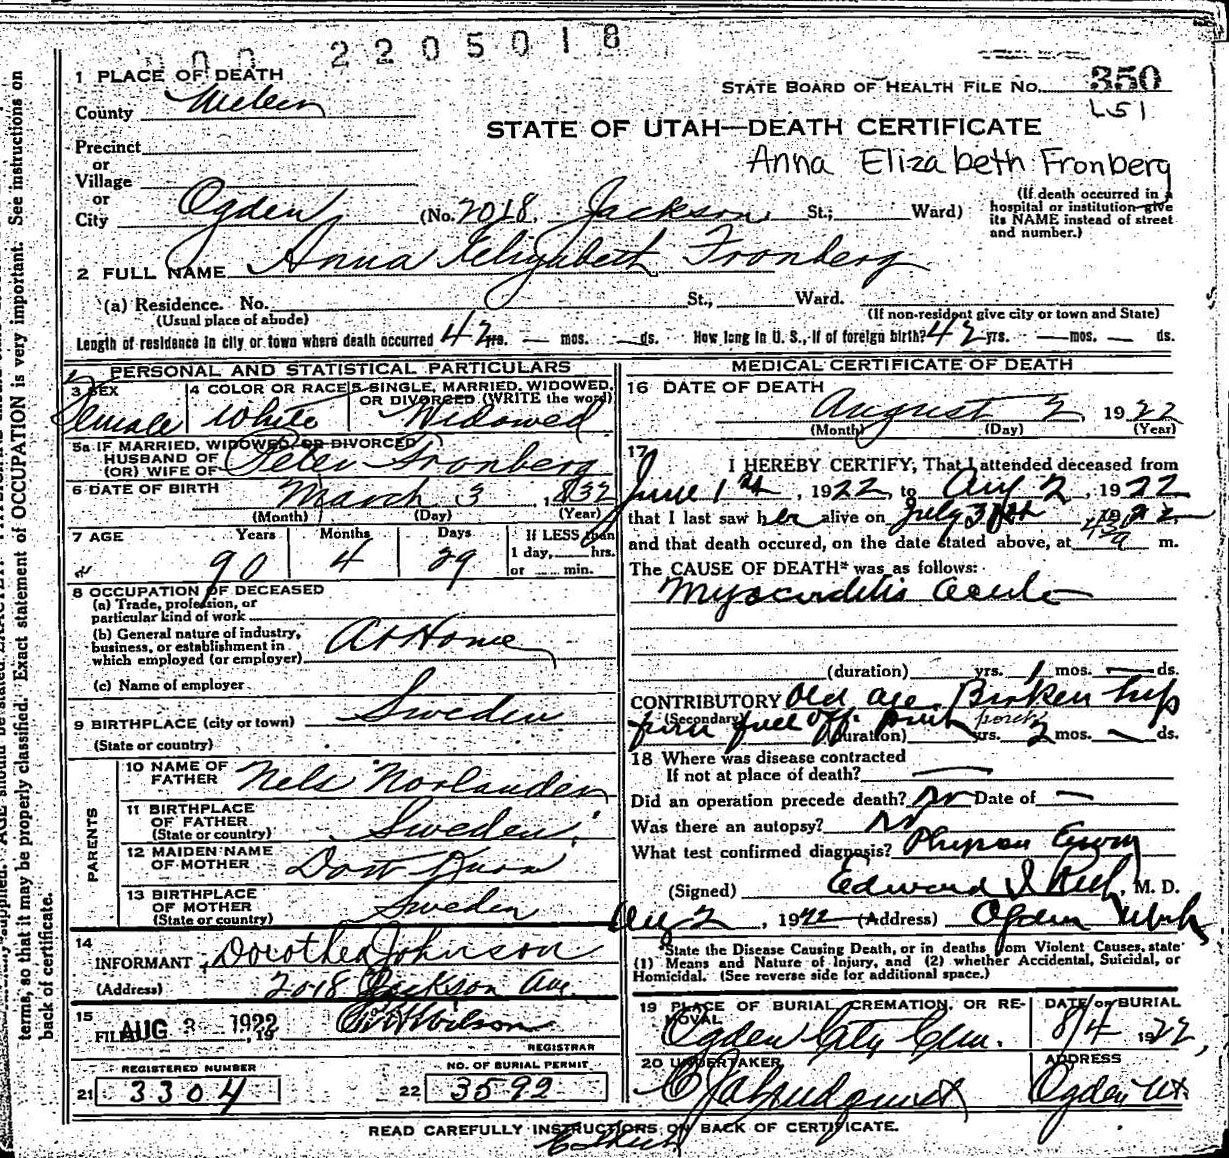 000 2205018
1 PLACE OF DEATH
County
STATE BOARD OF HEALTH FILE No. 350
L51
STATE OF UTAH—DEATH CERTIFICATE
Anna Elizabeth Fronberg
Precinct
or
Village
or
City Ogden (No. 2018 Jackson St.; Ward)
(If death occurred in a hospital or institution give its NAME instead of street and number.)
2 FULL NAME Anna Elizabeth Fronberg
(a) Residence. No. St., Ward.
(Usual place of abode) (If non-resident give city or town and State)
Length of residence in city or town where death occurred 42 yrs. — mos. — ds. How long in U. S., if of foreign birth? 42 yrs. — mos. — ds.
PERSONAL AND STATISTICAL PARTICULARS
3 SEX Female
4 COLOR OR RACE White
5 SINGLE, MARRIED, WIDOWED, OR DIVORCED (WRITE the word) Widowed
5a IF MARRIED, WIDOWED OR DIVORCED
HUSBAND OF
(OR) WIFE OF Peter Fronberg
6 DATE OF BIRTH March 3, 1832
(Month) (Day) (Year)
7 AGE Years Months Days If LESS than
90 4 29 1 day, hrs.
or min.
8 OCCUPATION OF DECEASED
(a) Trade, profession, or
particular kind of work
(b) General nature of industry,
business, or establishment in
which employed (or employer) At Home
(c) Name of employer
9 BIRTHPLACE (city or town) Sweden
(State or country)
PARENTS
10 NAME OF
FATHER Nels Norlander
11 BIRTHPLACE
OF FATHER
(State or country) Sweden
12 MAIDEN NAME
OF MOTHER Dont Know
13 BIRTHPLACE
OF MOTHER
(State or country) Sweden
14
INFORMANT Dorothea Johnson
(Address) 2018 Jackson Ave.
15
FILED AUG 3 1922, 19 Wilson
REGISTRAR
REGISTERED NUMBER
21 3304
NO. OF BURIAL PERMIT
22 3592
MEDICAL CERTIFICATE OF DEATH
16 DATE OF DEATH
August 2 1922
(Month) (Day) (Year)
17
I HEREBY CERTIFY, That I attended deceased from
June 1st, 1922, to Aug 2, 1922
that I last saw her alive on July 31st 1922
and that death occured, on the date stated above, at m.
The CAUSE OF DEATH* was as follows:
Myocarditis Acute
(duration) yrs. 1 mos. — ds.
CONTRIBUTORY Old age. Broken hip
(Secondary) from fall off porch
(duration) yrs. 2 mos. — ds.
18 Where was disease contracted
If not at place of death? —
Did an operation precede death? No Date of —
Was there an autopsy? No
What test confirmed diagnosis?
(Signed) Edward I Rich, M. D.
Aug 2, 1922 (Address) Ogden Utah
*State the Disease Causing Death, or in deaths from Violent Causes, state
(1) Means and Nature of Injury, and (2) whether Accidental, Suicidal, or
Homicidal. (See reverse side for additional space.)
19 PLACE OF BURIAL, CREMATION, OR REMOVAL
Ogden City Cem.
DATE of BURIAL
8/4 1922,
20 UNDERTAKER
ADDRESS
Ogden Ut
READ CAREFULLY INSTRUCTIONS ON BACK OF CERTIFICATE.
terms, so that it may be properly classified. Exact statement of OCCUPATION is very important. See instructions on
back of certificate.